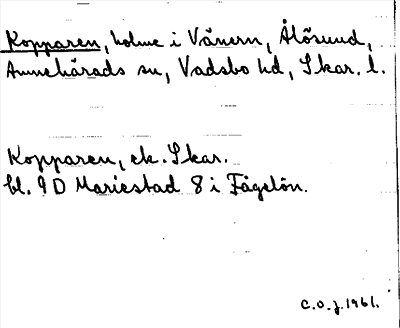 Kopparen, holme i Vänern, Ålösund,
Amnehärads sn, Vadsbo hd, Skar. l.
Kopparen, ek. Skar.
bl. 9 D Mariestad 8 i Fågelön.
C.O.J. 1961.